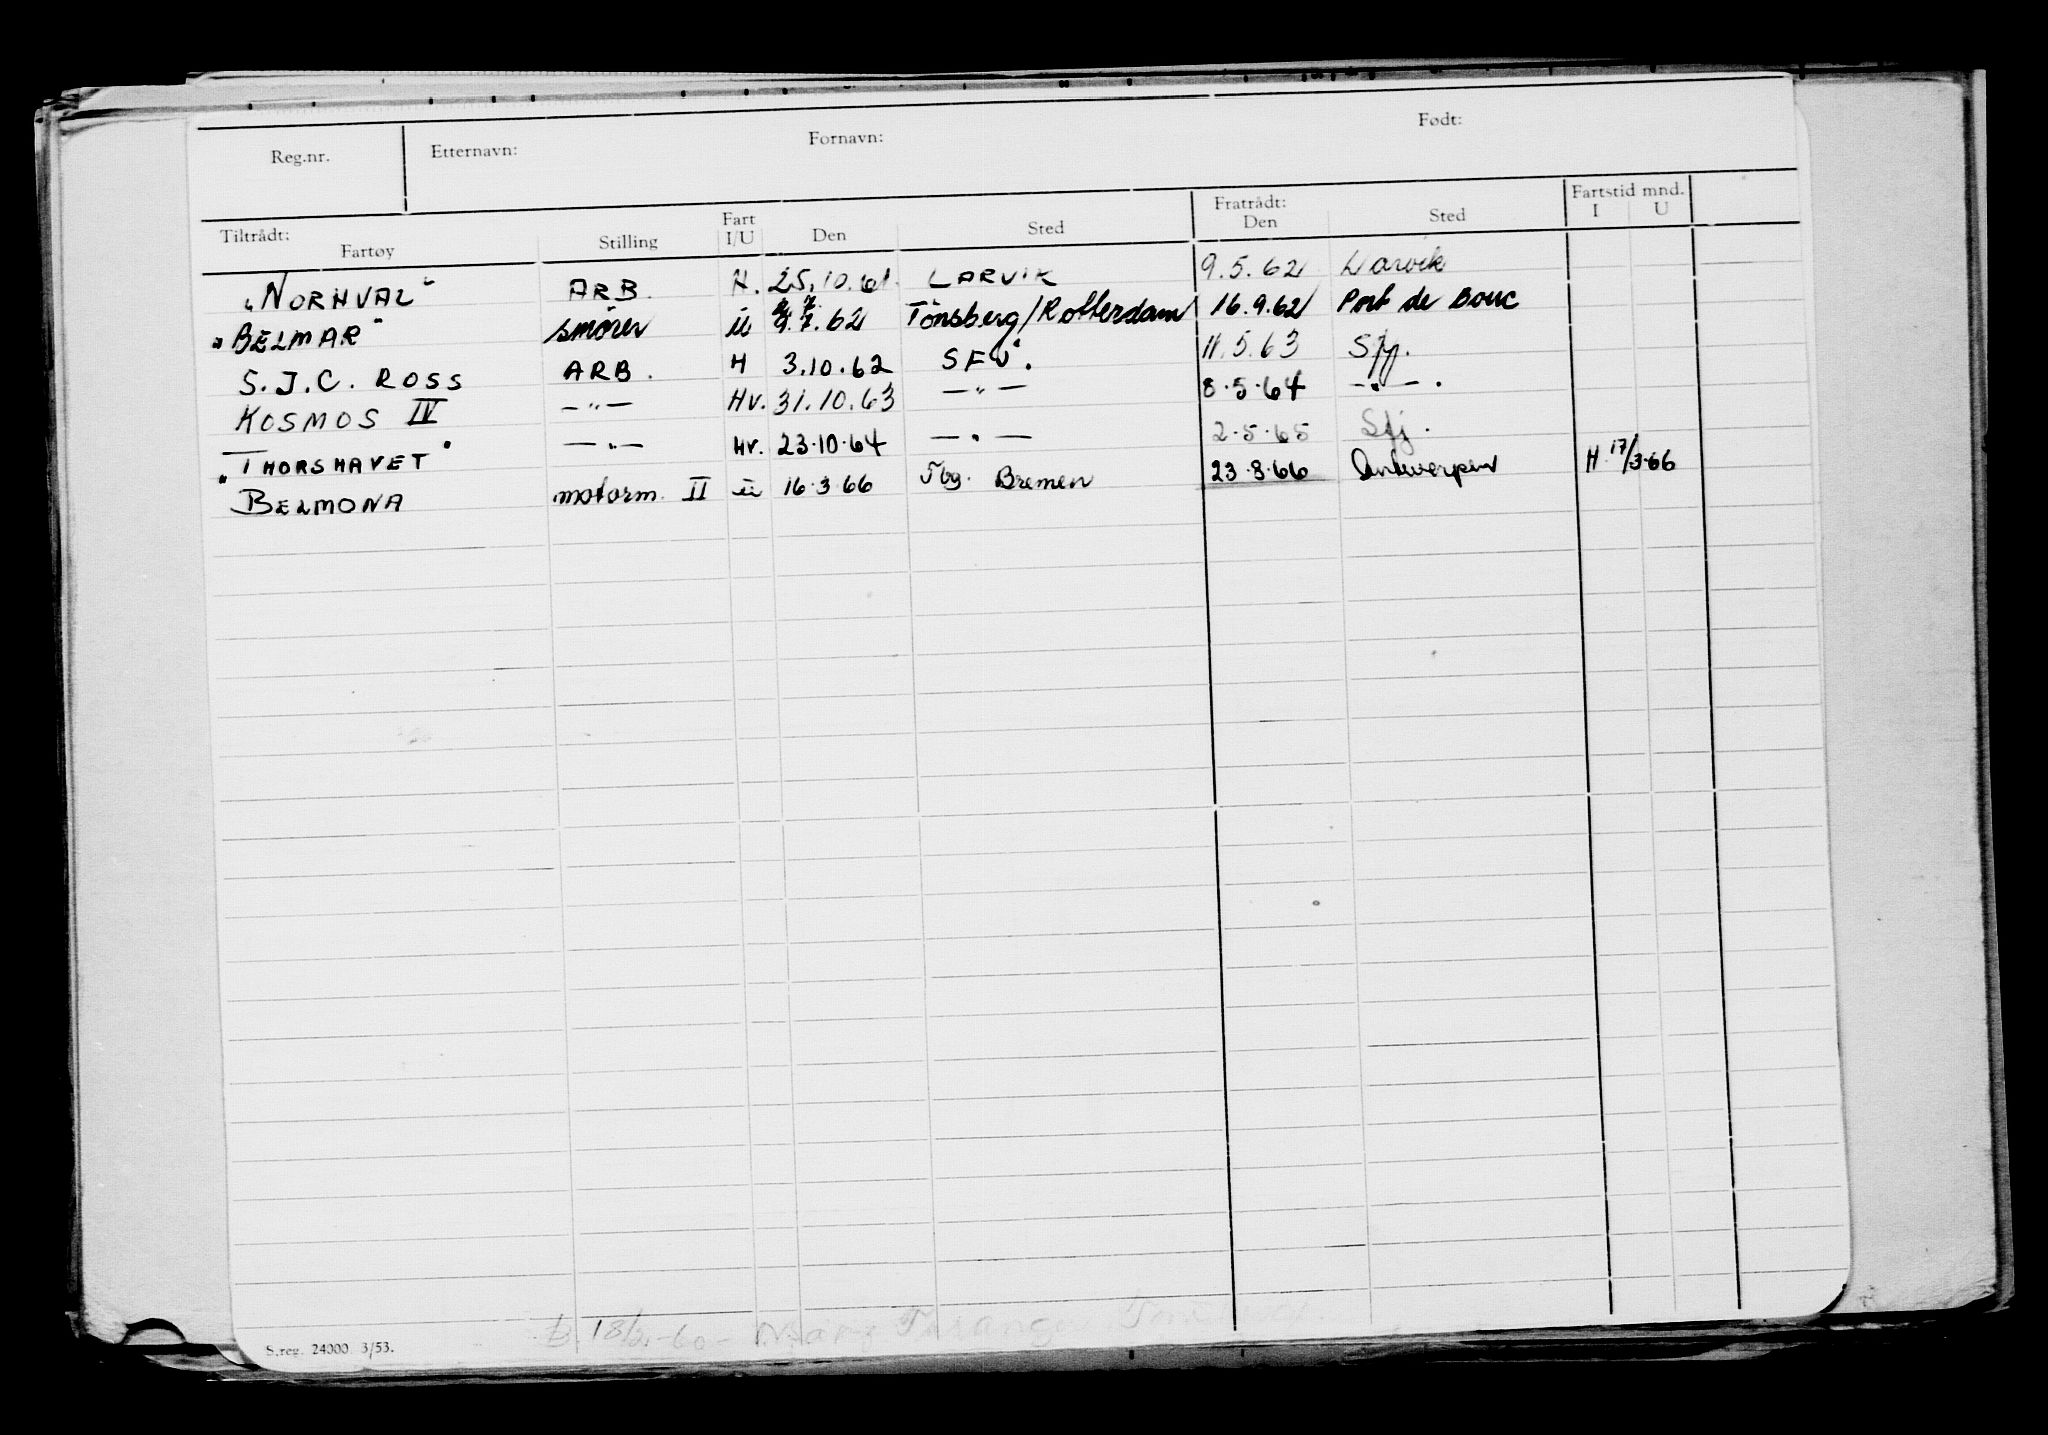 Reg.nr. Etternavn: Fornavn: Født:
Tiltrådt: Fartøy Stilling Fart I/U Den Sted Fratrådt: Den Sted Fartstid mnd. I U
"NORHVAL" ARB. H. 25.10.61. LARVIK 9.5.62 Larvik
"BELMAR" smører u 9.7.62 Tönsberg/Rotterdam 16.9.62 Port de Bouc
S.J.C. ROSS ARB. H 3.10.62 SFJ. 11.5.63 Sfj.
KOSMOS IV —"— Hv. 31.10.63 —"— 8.5.64 —"—.
"THORSHAVET" —"— Hv. 23.10.64 —"— 2.5.65 Sfj.
BELMONA motorm. II u 16.3.66 Tbg. Bremen 23.8.66 Antwerpen H 17/3-66
S.reg. 24000 3/53.